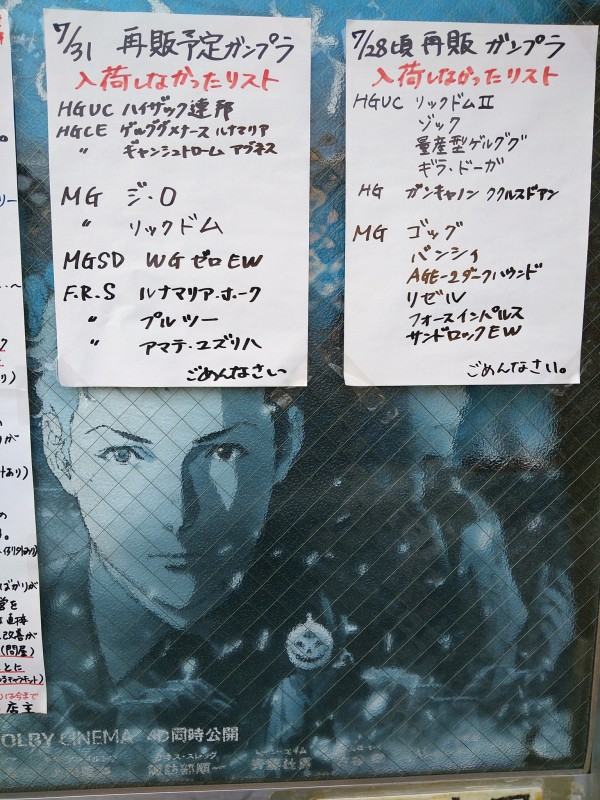 7/31 再販予定ガンプラ
入荷しなかったリスト
HGUC ハイザック連邦
HGCE ゲルググメナース ルナマリア
〃 ギャンシュトローム アグネス
MG ジ・O
〃 リックドム
MGSD WG ゼロ EW
F.R.S ルナマリア・ホーク
〃 プルツー
〃 アマテ・ユズリハ
ごめんなさい
7/28頃 再販 ガンプラ
入荷しなかったリスト
HGUC リックドムⅡ
ゾック
量産型ゲルググ
ギラ・ドーガ
HG ガンキャノン ククルスドアン
MG ゴッグ
バンシィ
AGE-2ダークハウンド
リゼル
フォースインパルス
サンドロックEW
ごめんなさい。
あり)
が
あり)
の
す。
ばかりが
営を
直接
改善が
(問屋)
ことに
は今まで
店主
OLBY CINEMA 4D同時公開
諏訪部順一